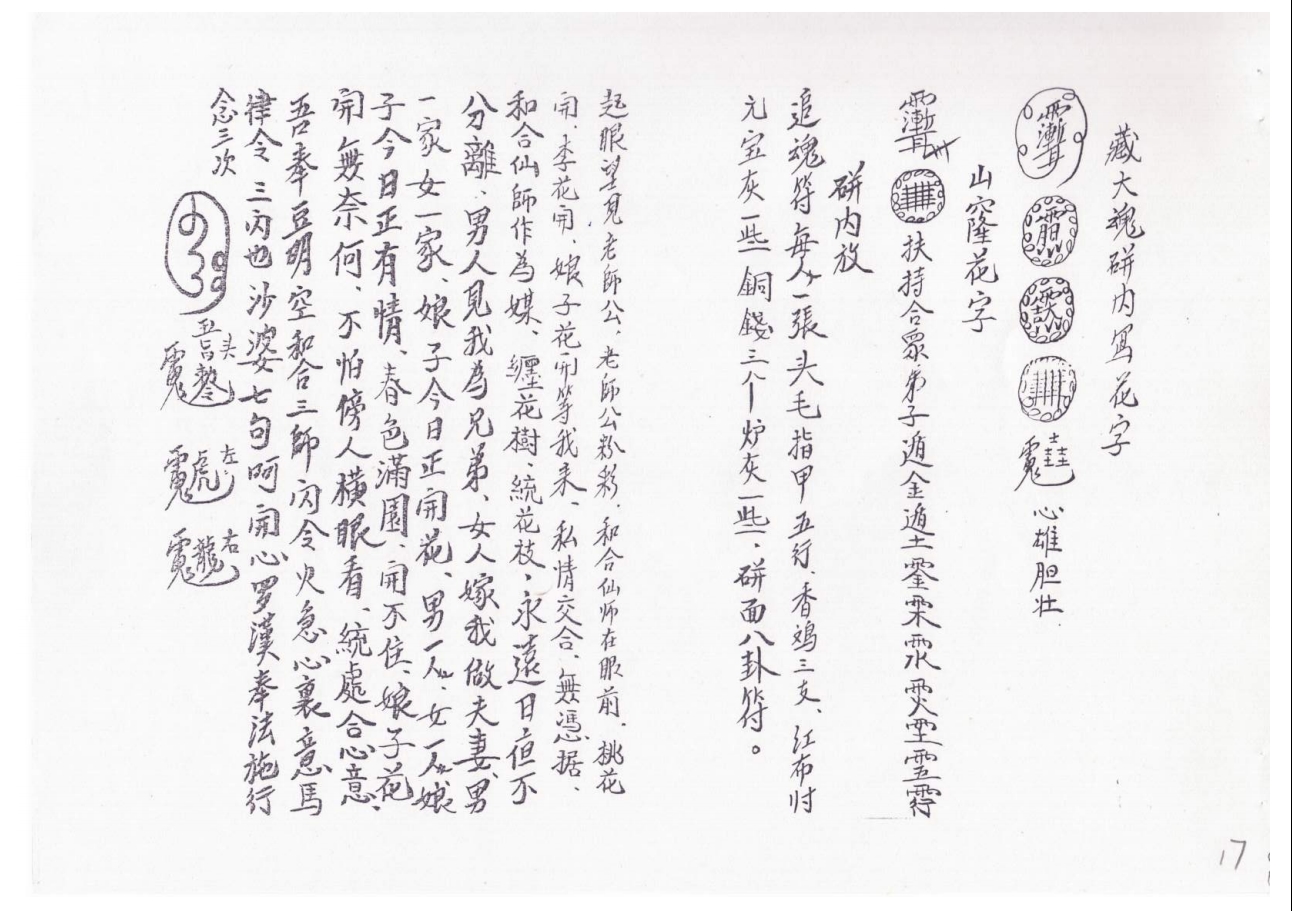 藏大魂砏内冩花字
心雄胆壮
山窿花字
扶持合眾弟子遁金遁土
砏内放
追魂符每人一張头毛指甲五行、香鸡三支、红布肘
元宝灰一些銅錢三个炉灰一些、砏面八卦符。
起眼望見老師公、老師公粉彩、和合仙师在眼前、桃花
開、李花開、娘子花開等我来、私情交合、無憑据、
和合仙師作為媒、纒花樹、統花枝、永遠日但不
分離、男人見我為兄弟、女人嫁我做夫妻、男
一家女一家、娘子今日正開花、男一人、女一人、娘
子今日正有情、春色滿園、開不住、娘子花
開無奈何、不怕傍人横眼看、統處合心意、
吾奉豆明空和合三師闪令火急心裏意馬
律令 三闪也沙婆七句呵開心罗漢奉法施行
念三次
头
左
虎
右
龍
17